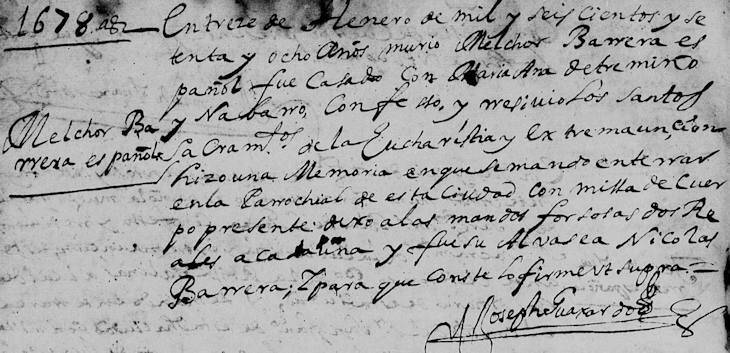 1678 as
En treze de Henero de mil y seis cientos y se
tenta y ocho Años murio Melchor Barrera es
pañol fue Casado con Maria Ana de tremiño
y Nabarro, Confeso, y rresivio los santos
sacramtos de la Eucharistia y Extremaunçion
hizo una Memoria en que se mando enterrar
en la Parrochial de esta Ciudad con missa de Cuer
po presente. dexo a las mandas forsosas dos Re
ales a cada una y fue su Alvasea Nicolas
Barrera; Y para que conste lo firme ut supra.
Melchor Ba
rrera español
Joseph Guaxardo